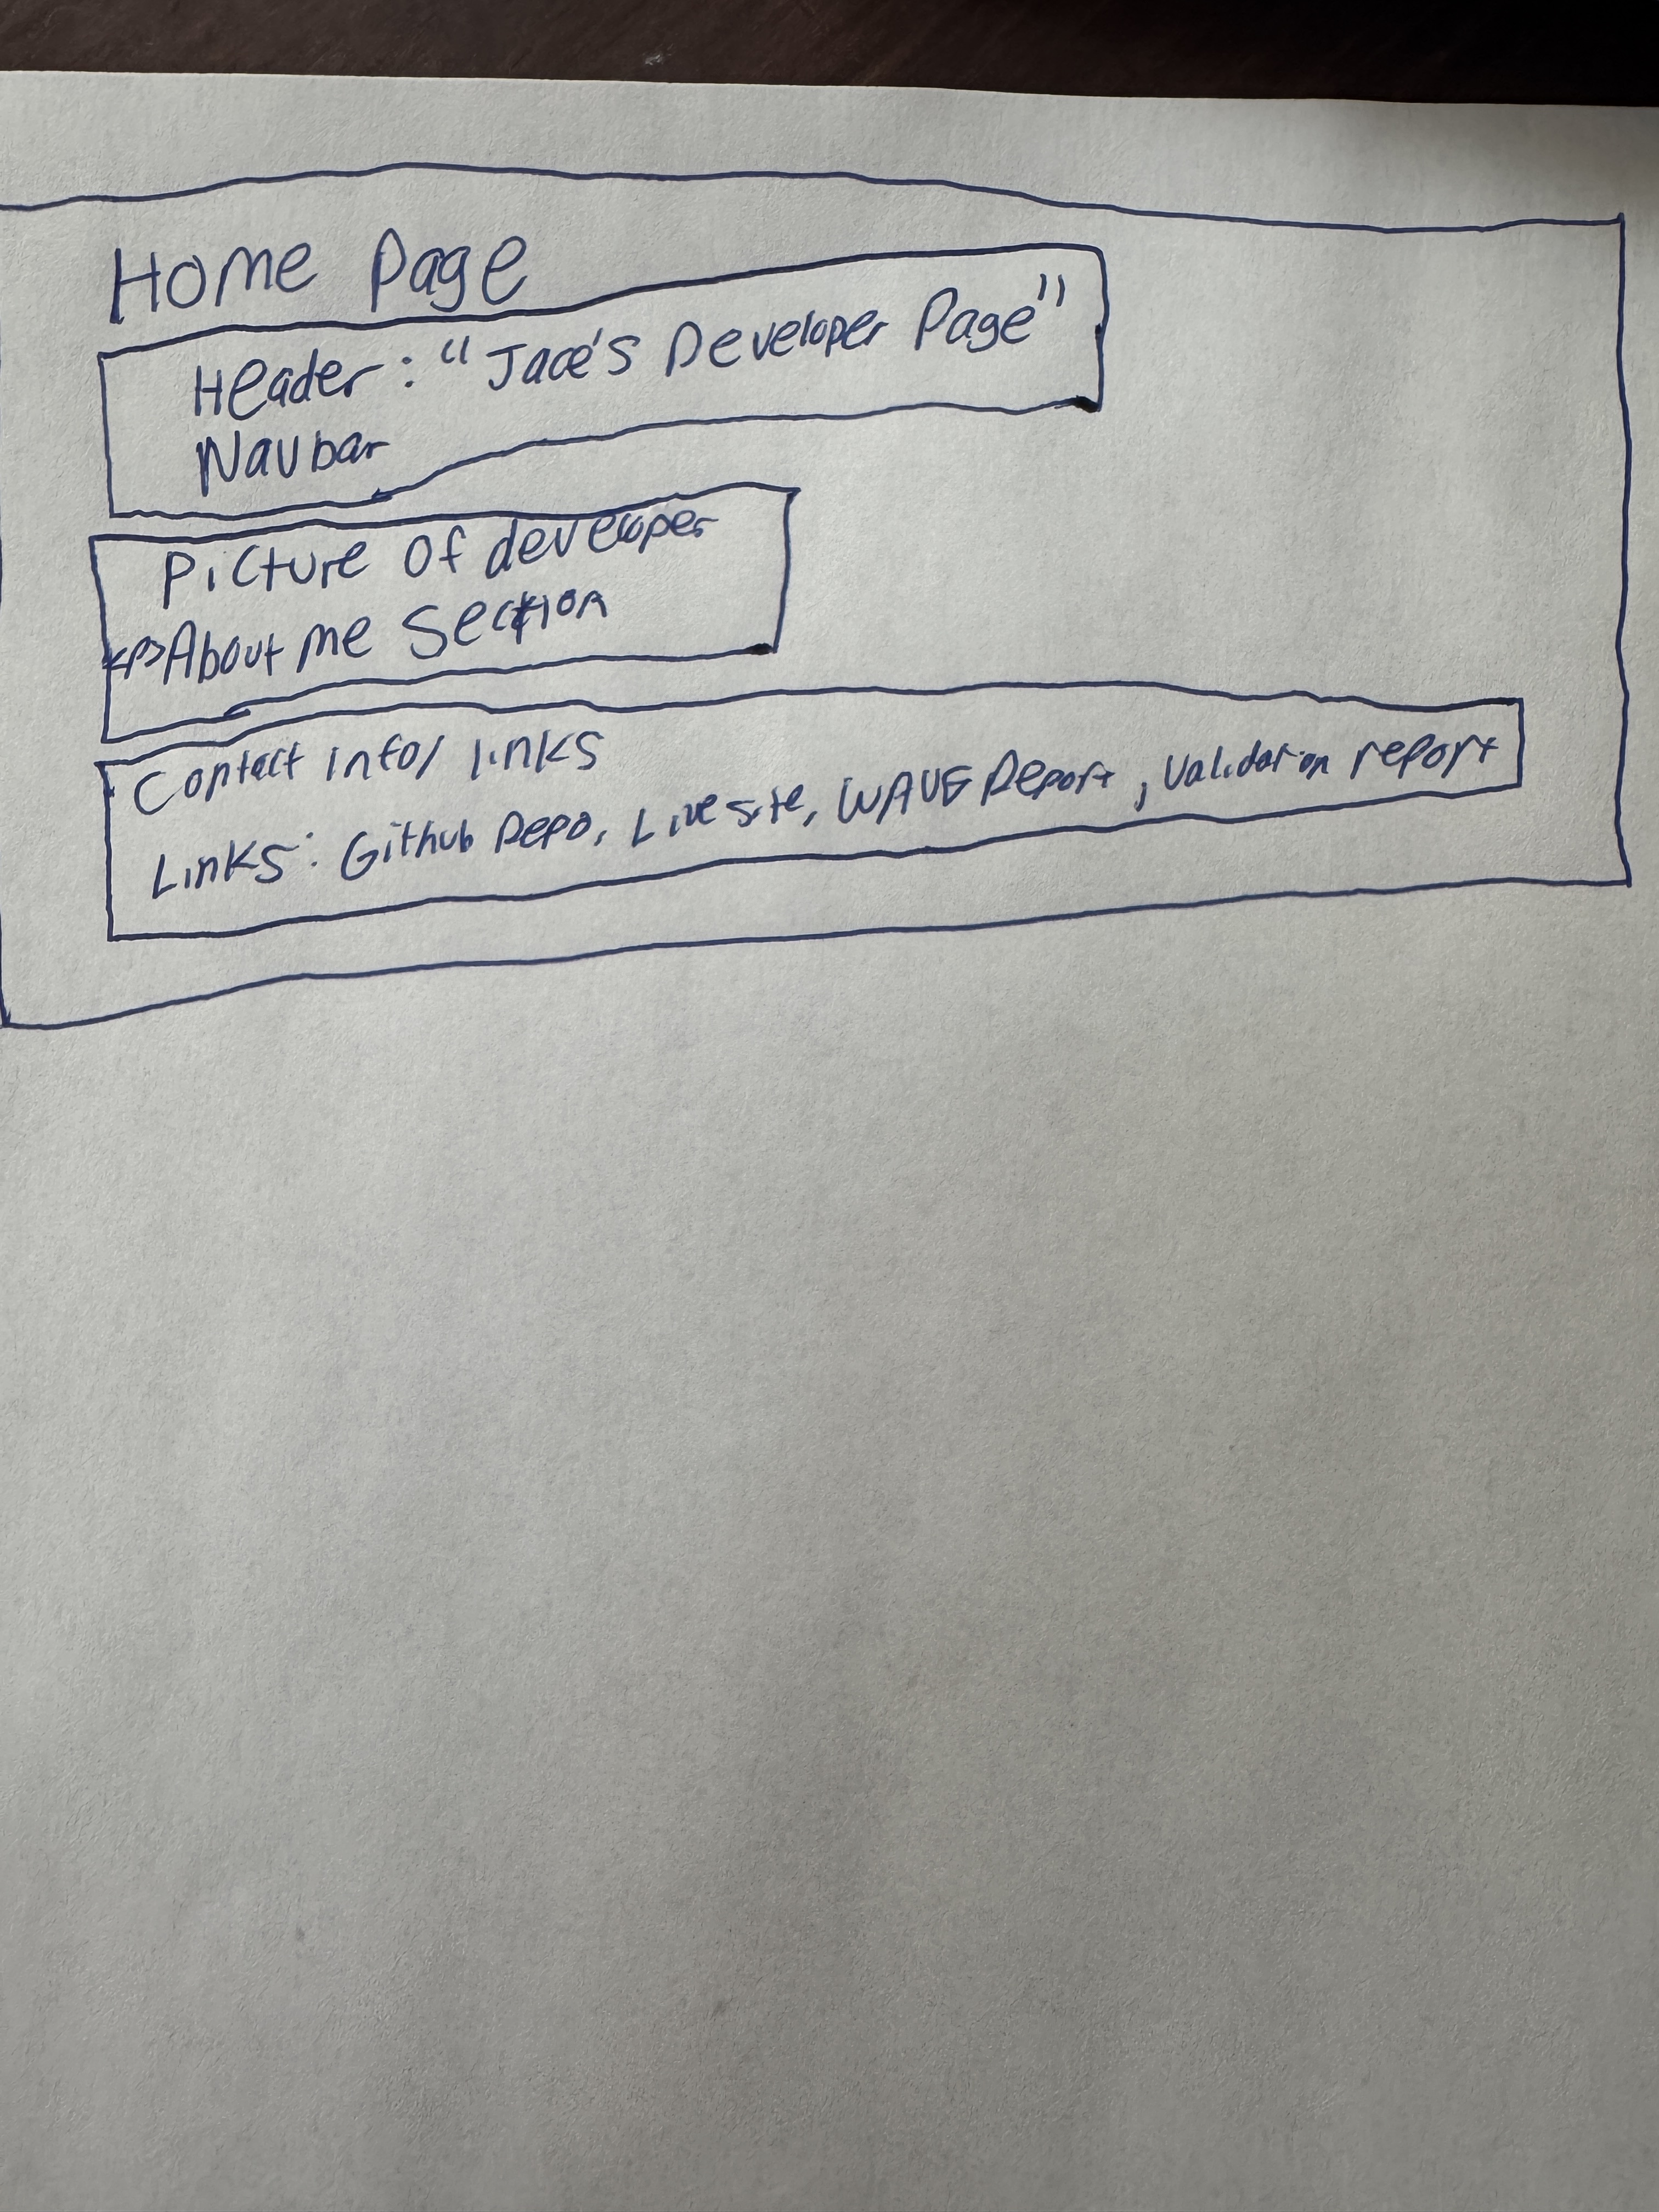 Home Page
Header: "Jace's Developer Page"
Navbar
Picture of developer
<P>About me Section
Contact info/ links
Links: Github Repo, Live site, WAVE Report, Validation report